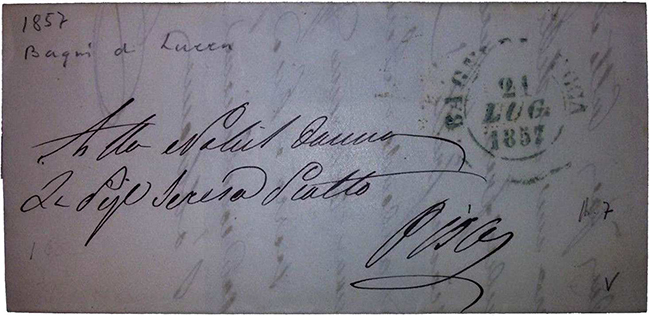 1857
Bagni di Lucca
BAGNI DI LUCCA
21
LUG.
1857
Alla Nobil Donna
La Sig.ra Teresa
Pisa
V